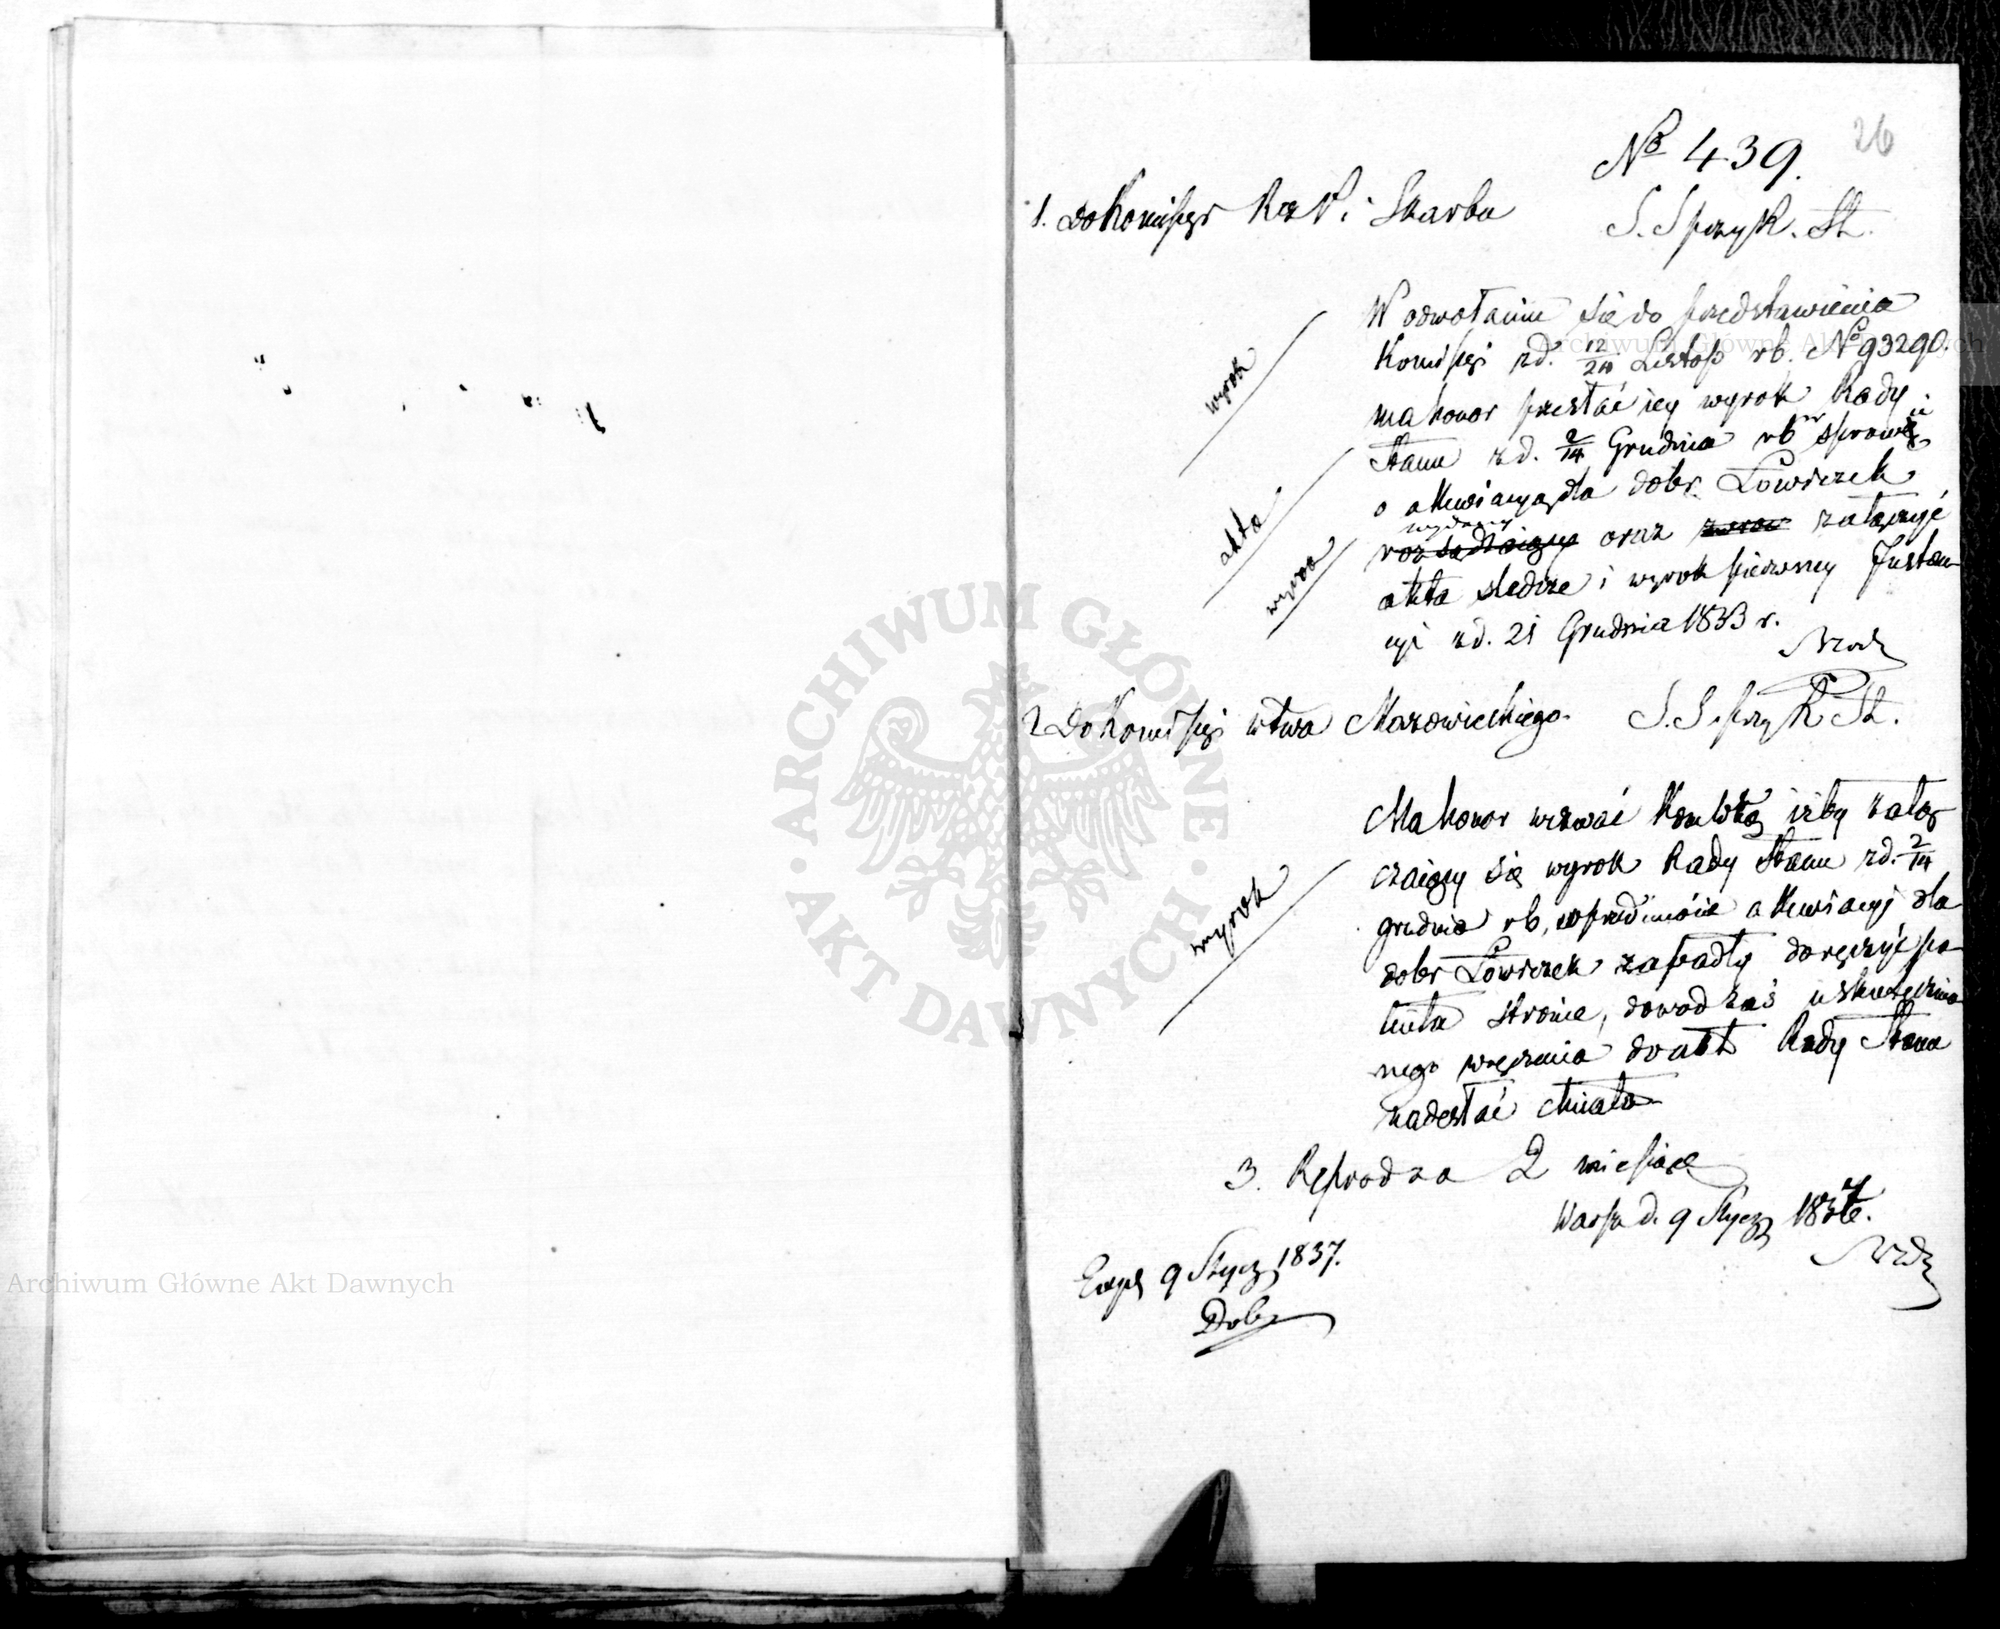 26
No 439.
1. Do Komissyi Rz. P. i Skarbu
S. S. przy R. St.
W odwołaniu się do przedstawienia
Komissyi z d. 12/24 Listop rb. No 93290.
ma honor przesłać iey wyrok Rady
Stanu z d. 2/14 Grudnia rb w sprawie
o akwiacyą dla dobr Łowiczek
wydany
oraz załączyć
akta śledcze i wyrok pierwszey Instan-
cyi z d. 21 Grudnia 1833 r.
wyrok
akta
wyrok
2 Do Komissyi wtwa Mazowieckiego
S. S. przy R. St.
Ma honor wezwać iżby załą-
czaiący się wyrok Rady Stanu z d. 2/14
grudnia rb, w przedmiocie akwiacyi dla
dobr Łowiczek zapadły doręczyć po-
stronie, dowod zaś uskutecznio-
nego wręczenia do akt Rady Stanu
nadesłać chciała
wyrok
3. Reprod za 2 miesiące
Warsz d. 9 Stycz 1837.
Exp 9 Stycz 1837.
Dob
Archiwum Główne Akt Dawnych
ARCHIWUM GŁÓWNE · AKT DAWNYCH ·
Archiwum Główne Akt Dawnych